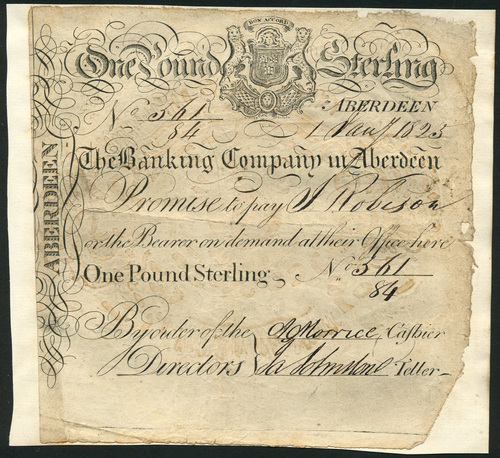 BON ACCORD
One Pound Sterling
ABERDEEN
No 561/84 1 Jany 1825
The Banking Company in Aberdeen
Promise to pay J Robison
or the Bearer on demand at their Office here
One Pound Sterling No 561/84
By order of the Cashier
Directors Ja Johnstone Teller
ABERDEEN